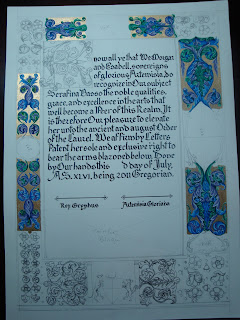 now all ye that We Morgan
and Loabell, sovereigns
of glorious Artemisia, do
recognize in Our subject
Serafina Vasso the noble qualities,
grace, and excellence in the arts that
well become a Peer of this Realm. It
is therefore Our pleasure to elevate
her unto the ancient and august Order
of the Laurel. We affirm by Letters
Patent her sole and exclusive right to
bear the arms blazoned below. Done
by Our hands this d day of July,
A.S. XLVI, being 2011 Gregorian.
Rex Gryphus
Artemisia Gloriosa